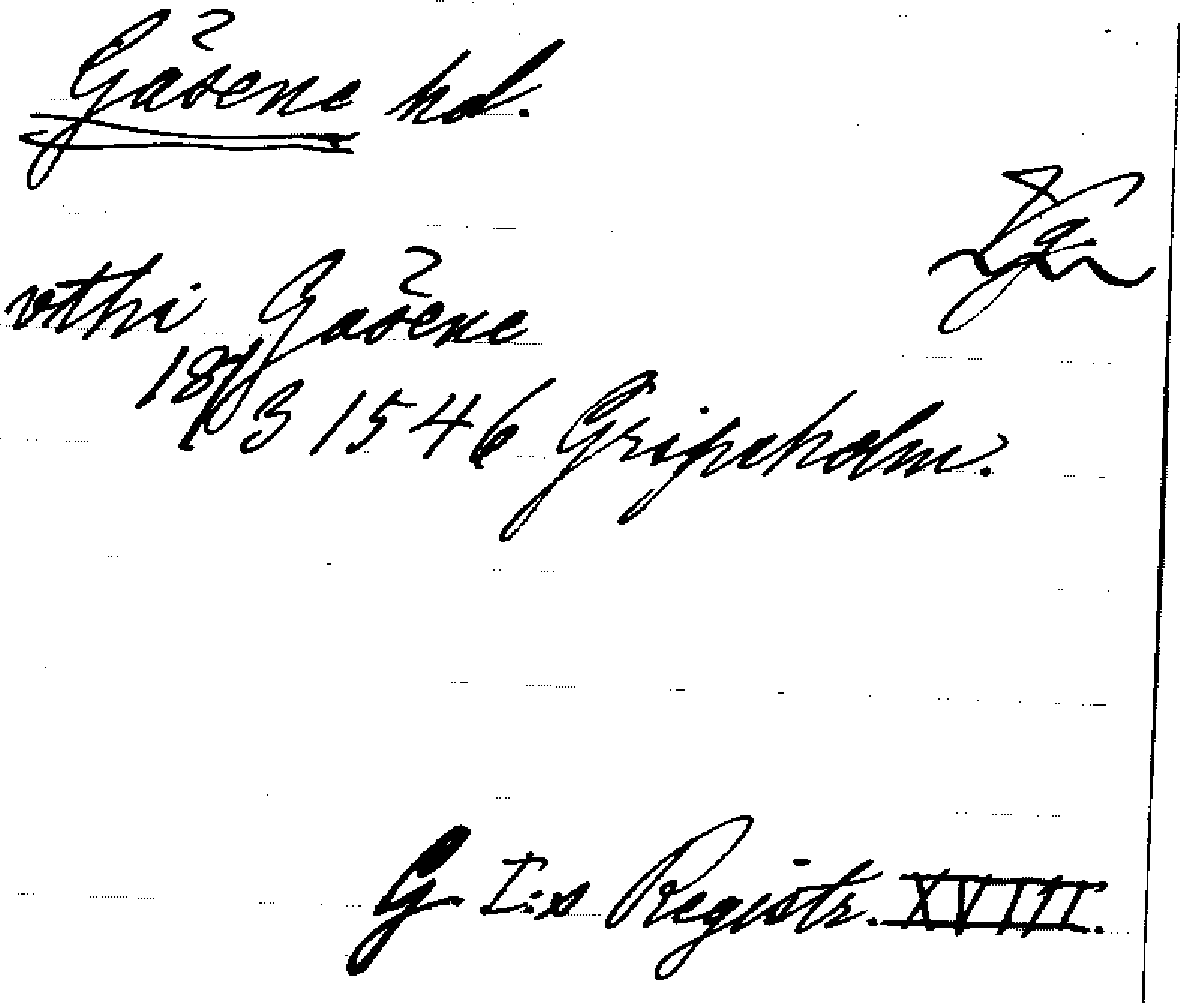 Gåsene hd.
Vg.
vthi Gåsene
18/3 1546 Gripsholm.
G. I:s Registr. XVIII.